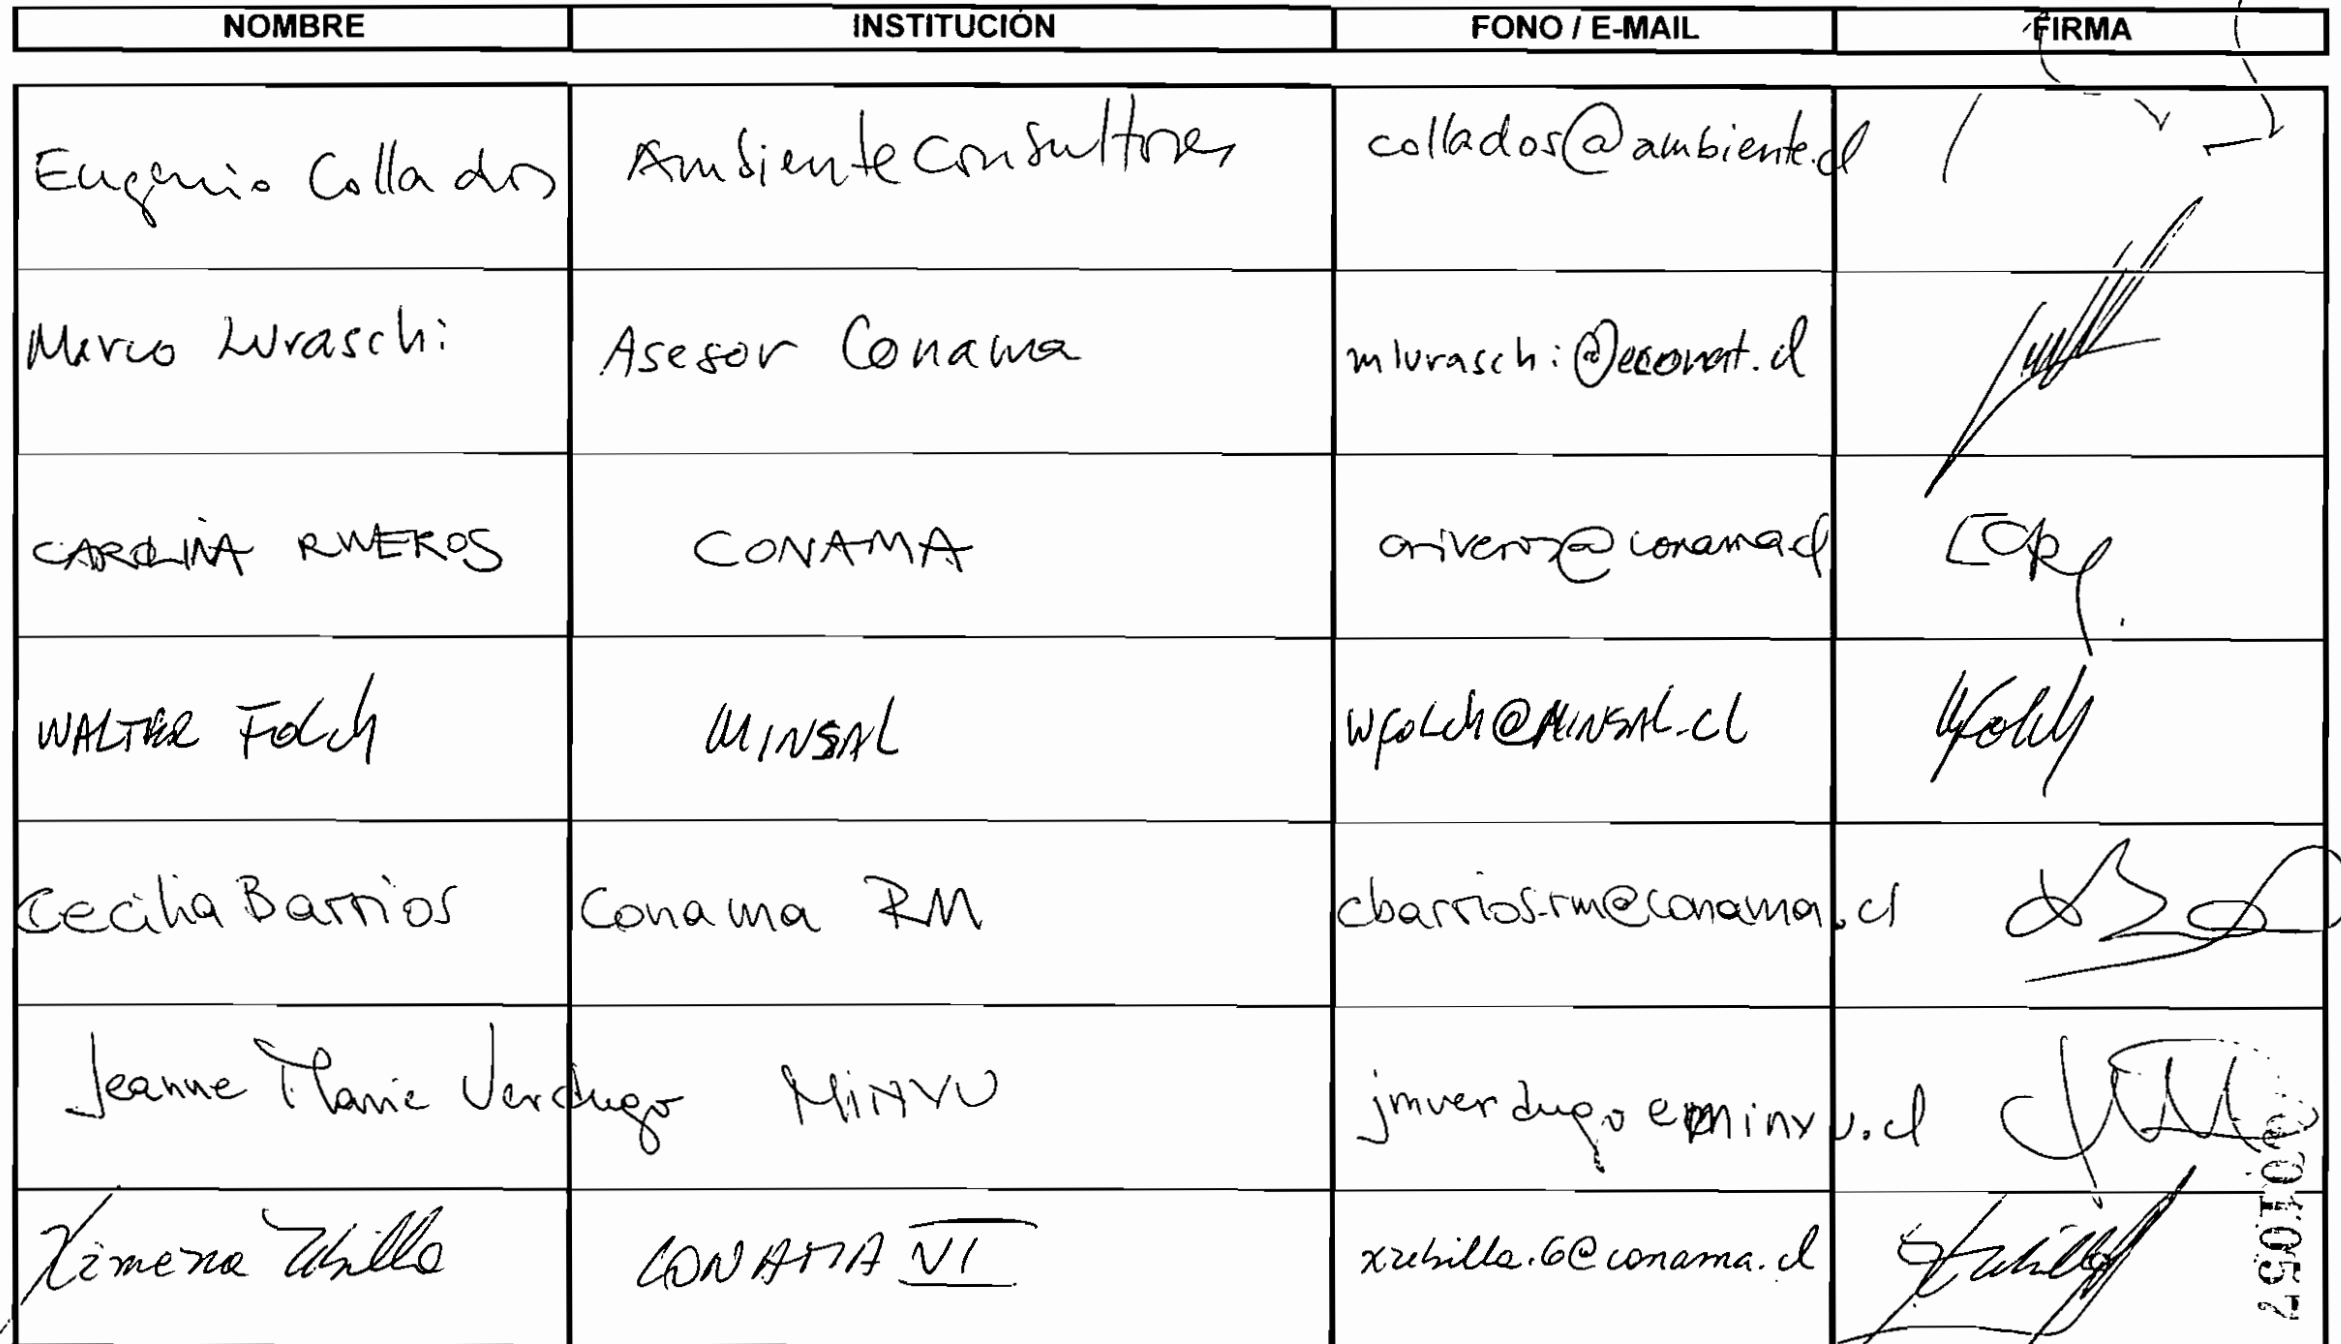 NOMBRE INSTITUCIÓN FONO / E-MAIL FIRMA
Eugenio Collados Ambiente Consultores collados@ambiente.cl
Marco Luraschi Asesor Conama mluraschi@econat.cl
CAROLINA RIVEROS CONAMA criveros@conama.cl
WALTER Folch MINSAL wfolch@MINSAL.cl Wfolch
Cecilia Barrios Conama RM cbarrios.rm@conama.cl
Jeanne Marie Verdugo MINVU jmverdugo@minvu.cl
Ximena Ubilla CONAMA VI xubilla.6@conama.cl